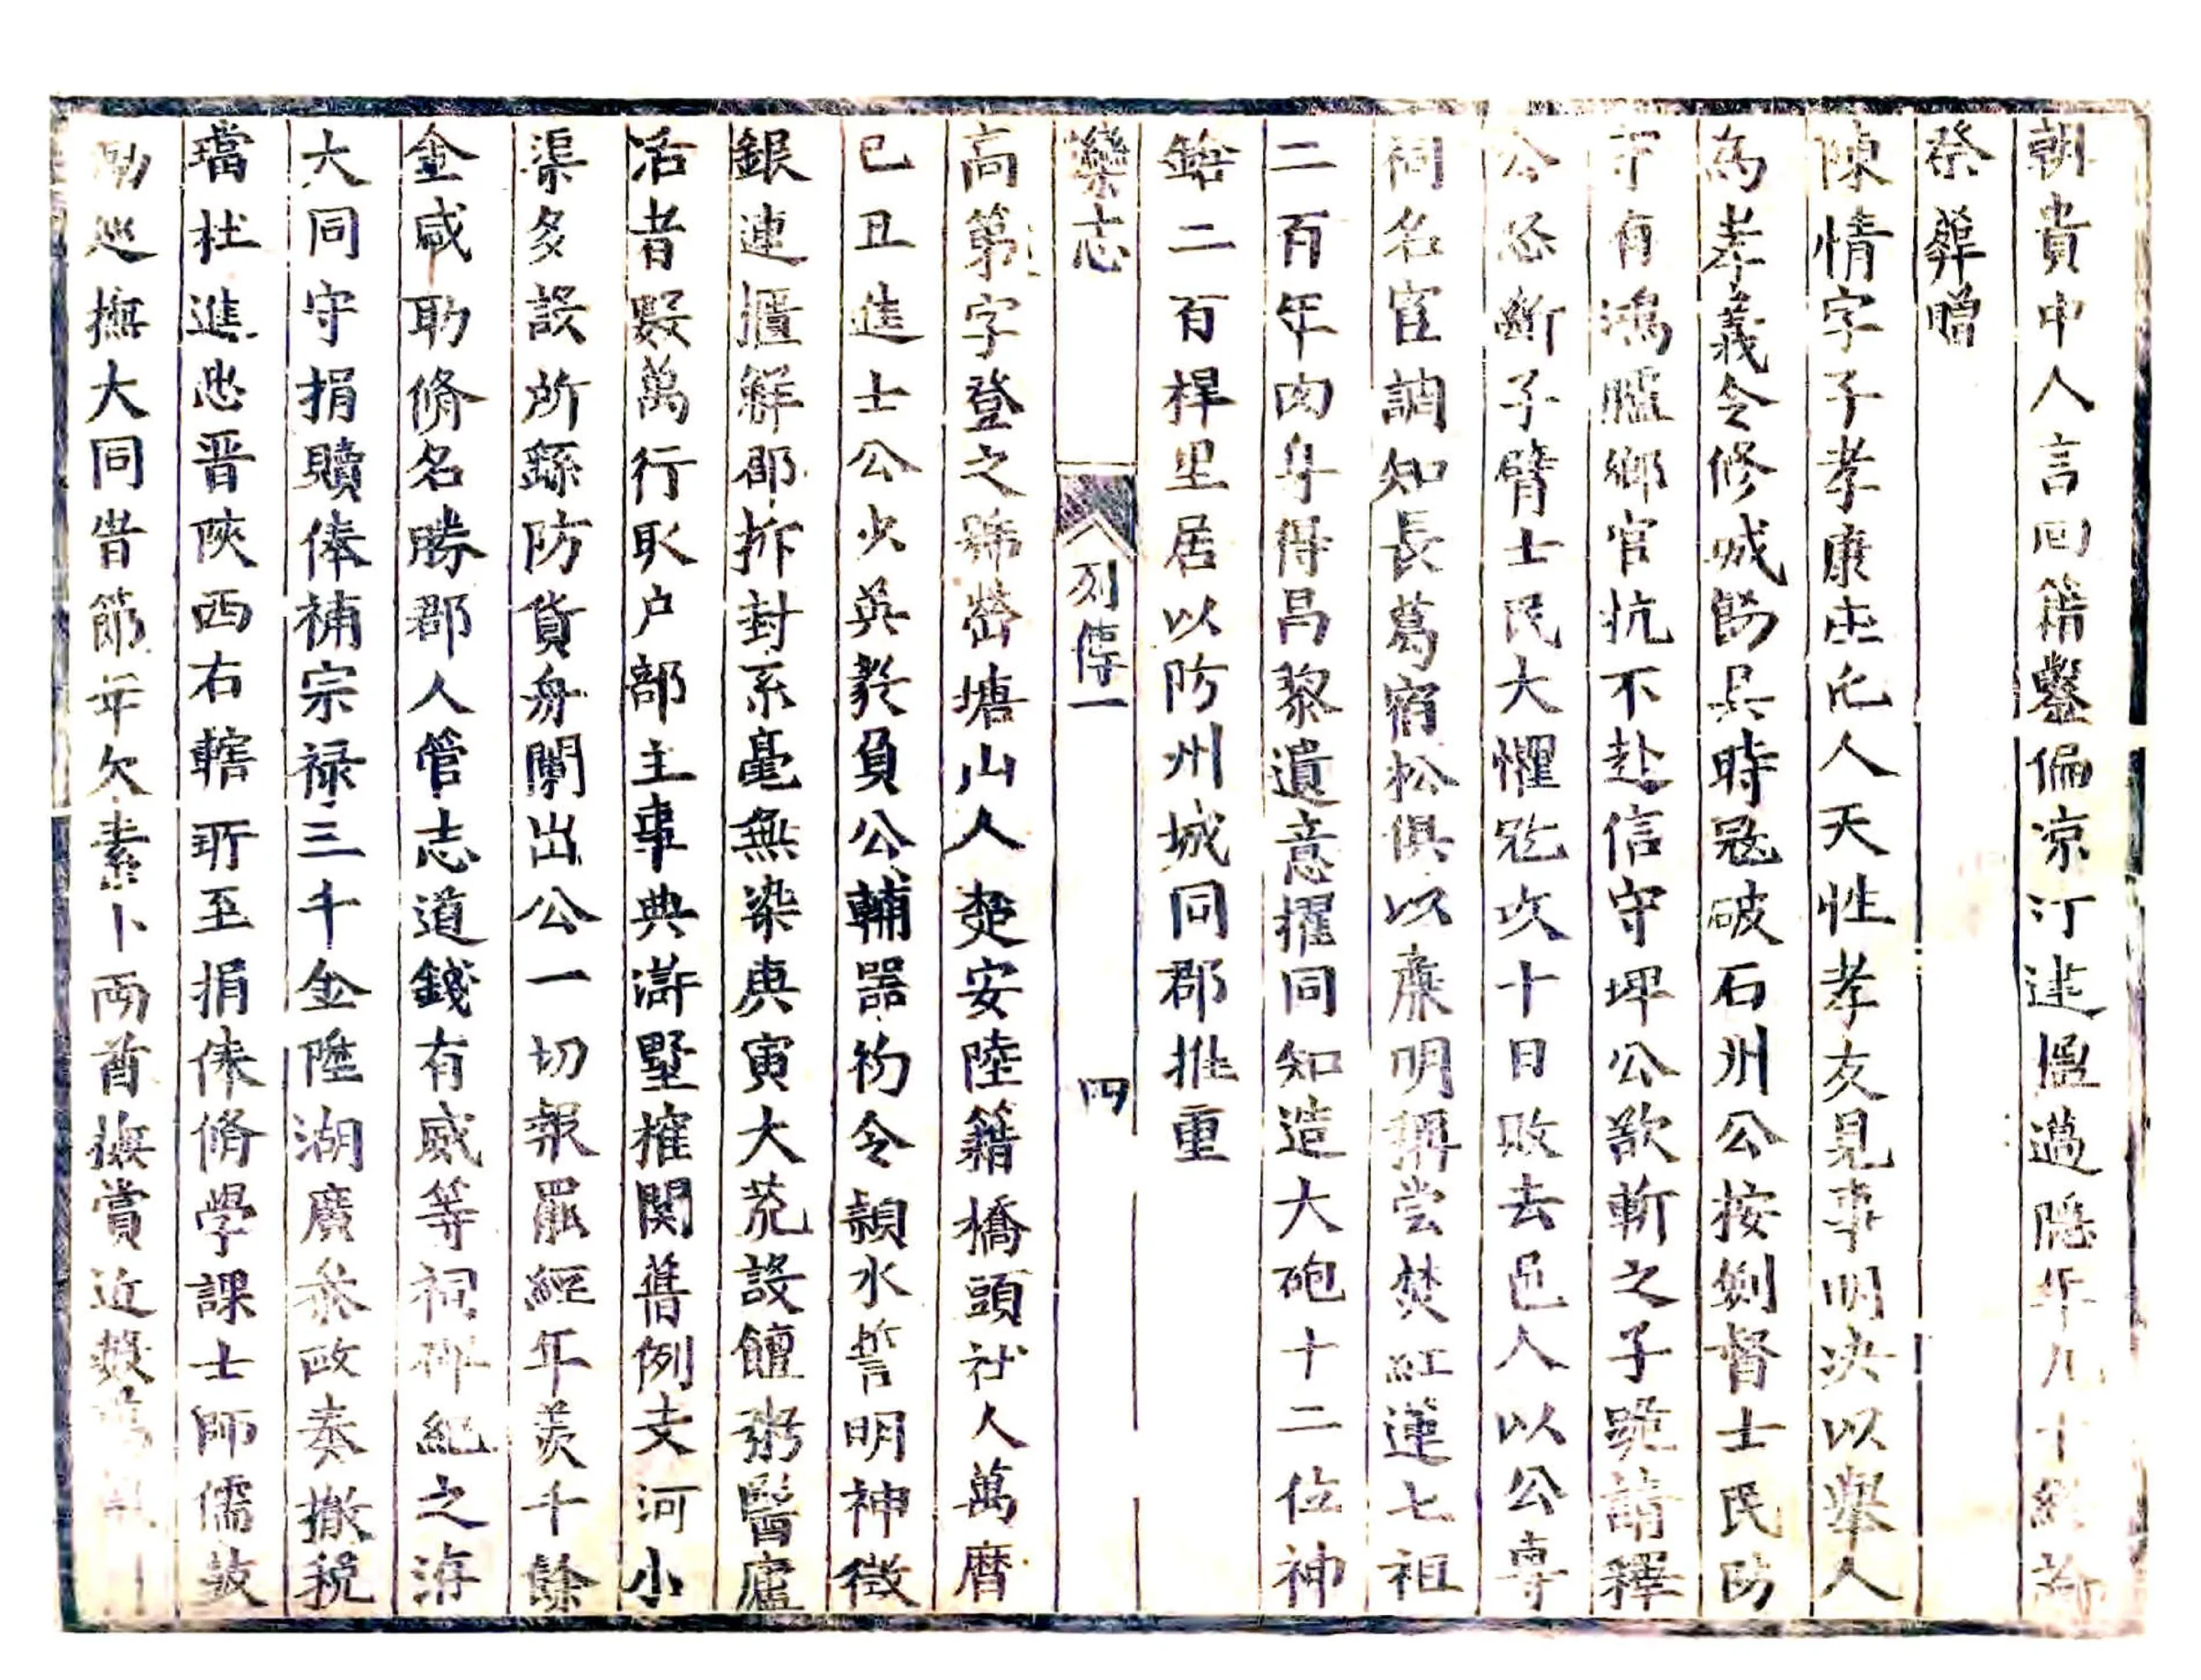 朝貴中人言回籍鑿偏凉汀逮搵薖隐年九十終
祭葬贈
陳情字子孝康庄氏人天性孝友見事明决以舉人
為孝義令修城餙具時冦破石州公按劍督士民防
守有鴻臚鄉官抗不赴信守埤公欲斬之子跪請釋
公怒斷子臂士民大懼冦攻十日敗去邑人以公專
祠名宦調知長葛宿松俱以亷明稱尝焚紅蓮七祖
二百年肉身得昌黎遺意擢同知造大砲十二位神
鎗二百桿里居以防州城同郡推重
灤志 列傳一 四
高第字登之號嵤塘山人楚安陸籍橋頭社人萬曆
己丑進士公少英毅負公輔器初令潁水誓明神徵
銀連櫃觧郡拆封糸毫無染庚寅大荒設饘粥醫廬
活者數萬行取户部主事典滸墅榷関舊例支河小
渠多設所繇防貨舟闌出公一切報罷經年羡千餘
金咸助脩名勝郡人管志道錢有威等祠碑紀之海
大同守捐贖俸補宗禄三千金陞湖廣叅政奏撤税
璫杜進忠晋陜西右轄所至捐俸脩學課士師儒
巡撫大同昔節年欠素卜两酋撫賞近